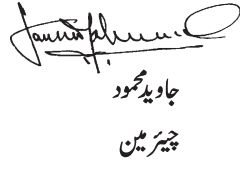 جاوید محمود
چیئرمین